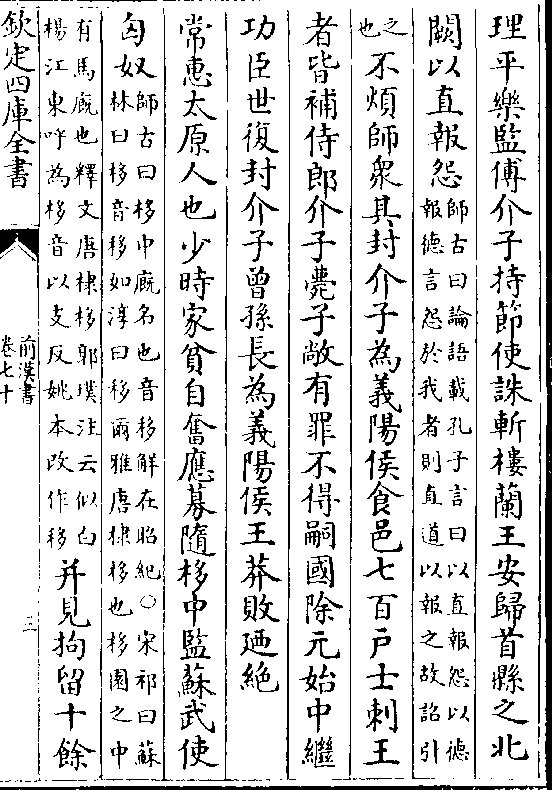 理平樂監傅介子持節使誅斬樓蘭王安歸首縣之北
闕以直報怨師古曰論語載孔子言曰以直報怨以德
報德言怨於我者則直道以報之故詔引
之
也不煩師衆其封介子為義陽侯食邑七百戶士刺王
者皆補侍郎介子薨子敞有罪不得嗣國除元始中繼
功臣世復封介子曾孫長為義陽侯王莽敗廼絶
常惠太原人也少時家貧自奮應募隨栘中監蘇武使
匈奴師古曰栘中廐名也音移解在昭紀○宋祁曰蘇
林曰栘音移如淳曰栘爾雅唐棣栘也栘園之中
有馬廐也釋文唐棣栘郭璞注云似白
楊江東呼為栘音以支反姚本改作移并見拘留十餘
欽定四庫全書
前漢書
卷七十
三